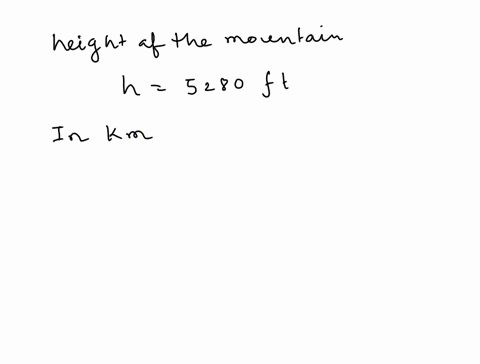 height of the mountain
h = 5280 ft
In km